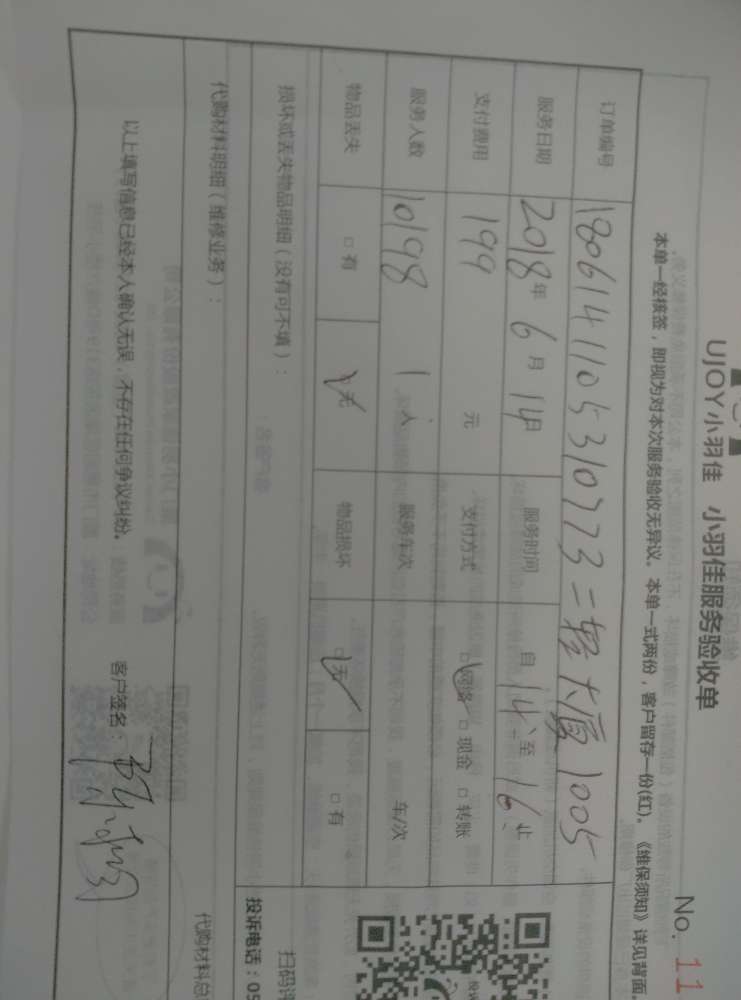 UJOY小羽佳 小羽佳服务验收单
No. 11
本单一经核签，即视为对本次服务验收无异议。本单一式两份，客户留存一份(红)。《维保须知》详见背面。
订单编号 1806141105310773 二轻大厦1005
服务日期 2018年6月14日 服务时间 自14至16止
支付费用 199 元 支付方式 □网络 □现金 □转账
服务人数 10198 1人 服务车次 车/次
物品丢失 □有 □无 物品损坏 □无 □有
损坏或丢失物品明细（没有可不填）：
扫码评
投诉电话：05
代购材料明细（维修业务）：
代购材料总
以上填写信息已经本人确认无误，不存在任何争议纠纷。 客户签名：